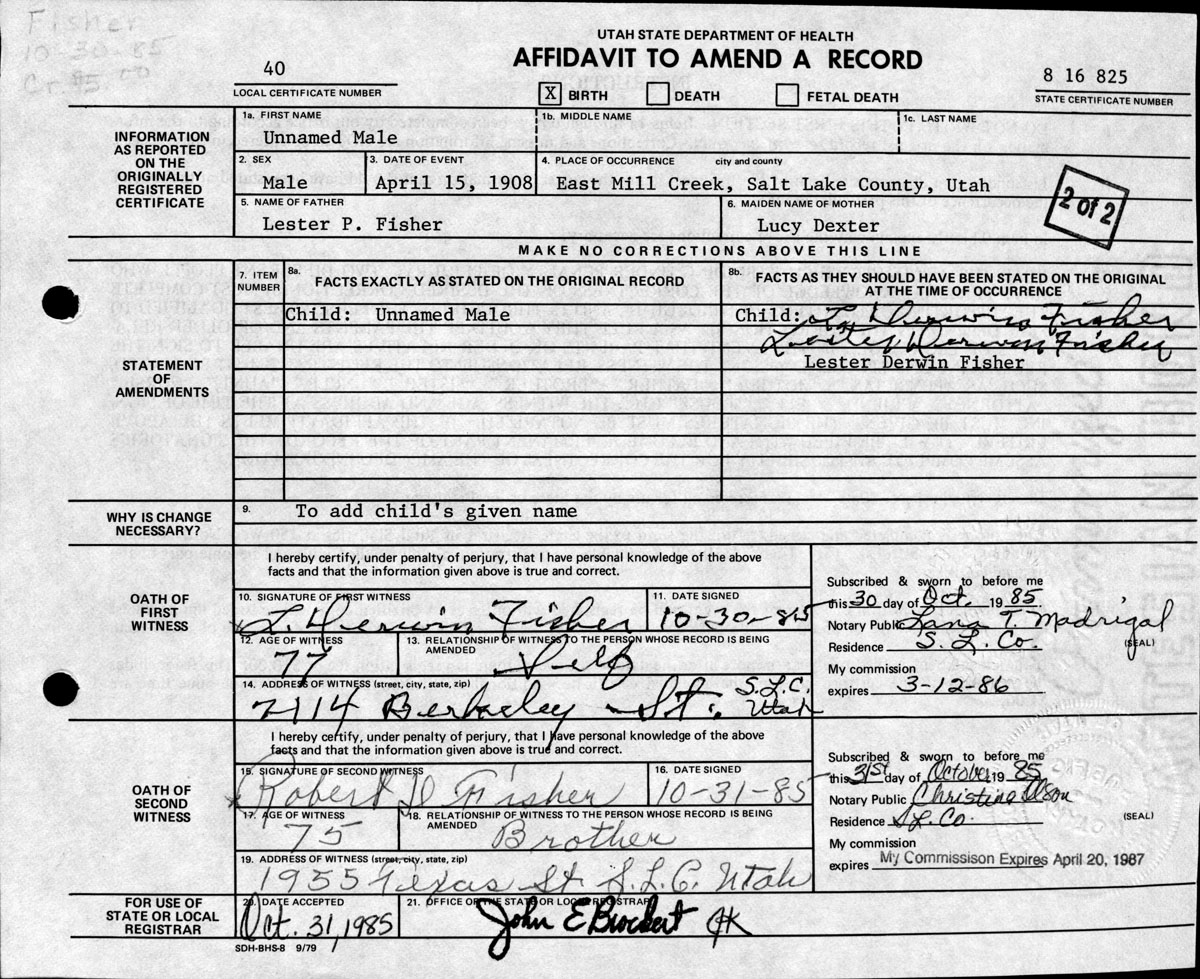 Fisher
10-30-85
Cr. $5.00
UTAH STATE DEPARTMENT OF HEALTH
AFFIDAVIT TO AMEND A RECORD
40
LOCAL CERTIFICATE NUMBER
X BIRTH DEATH FETAL DEATH
8 16 825
STATE CERTIFICATE NUMBER
INFORMATION AS REPORTED ON THE ORIGINALLY REGISTERED CERTIFICATE
1a. FIRST NAME 1b. MIDDLE NAME 1c. LAST NAME
Unnamed Male
2. SEX 3. DATE OF EVENT 4. PLACE OF OCCURRENCE city and county
Male April 15, 1908 East Mill Creek, Salt Lake County, Utah
2 of 2
5. NAME OF FATHER 6. MAIDEN NAME OF MOTHER
Lester P. Fisher Lucy Dexter
MAKE NO CORRECTIONS ABOVE THIS LINE
STATEMENT OF AMENDMENTS
7. ITEM NUMBER
8a. FACTS EXACTLY AS STATED ON THE ORIGINAL RECORD
8b. FACTS AS THEY SHOULD HAVE BEEN STATED ON THE ORIGINAL
AT THE TIME OF OCCURRENCE
Child: Unnamed Male Child: L. Derwin Fisher
Lester Derwin Fisher
Lester Derwin Fisher
WHY IS CHANGE NECESSARY?
9. To add child's given name
OATH OF FIRST WITNESS
I hereby certify, under penalty of perjury, that I have personal knowledge of the above
facts and that the information given above is true and correct.
10. SIGNATURE OF FIRST WITNESS 11. DATE SIGNED
L. Derwin Fisher 10-30-85
12. AGE OF WITNESS 13. RELATIONSHIP OF WITNESS TO THE PERSON WHOSE RECORD IS BEING
AMENDED
77 Self
14. ADDRESS OF WITNESS (street, city, state, zip)
2114 Berkeley St. S.L.C. Utah
Subscribed & sworn to before me
this 30 day of Oct. 19 85
Notary Public Lana T. Madrigal
Residence S. L. Co. (SEAL)
My commission
expires 3-12-86
OATH OF SECOND WITNESS
I hereby certify, under penalty of perjury, that I have personal knowledge of the above
facts and that the information given above is true and correct.
15. SIGNATURE OF SECOND WITNESS 16. DATE SIGNED
Robert D Fisher 10-31-85
17. AGE OF WITNESS 18. RELATIONSHIP OF WITNESS TO THE PERSON WHOSE RECORD IS BEING
AMENDED
75 Brother
19. ADDRESS OF WITNESS (street, city, state, zip)
1955 Texas St S.L.C. Utah
Subscribed & sworn to before me
this 31st day of October 19 85
Notary Public Christine Olson
Residence S.L. Co. (SEAL)
My commission
expires My Commisison Expires April 20, 1987
FOR USE OF STATE OR LOCAL REGISTRAR
20. DATE ACCEPTED 21. OFFICE OF THE STATE OR LOCAL REGISTRAR
Oct. 31, 1985 John E Brockert
SDH-BHS-8 9/79